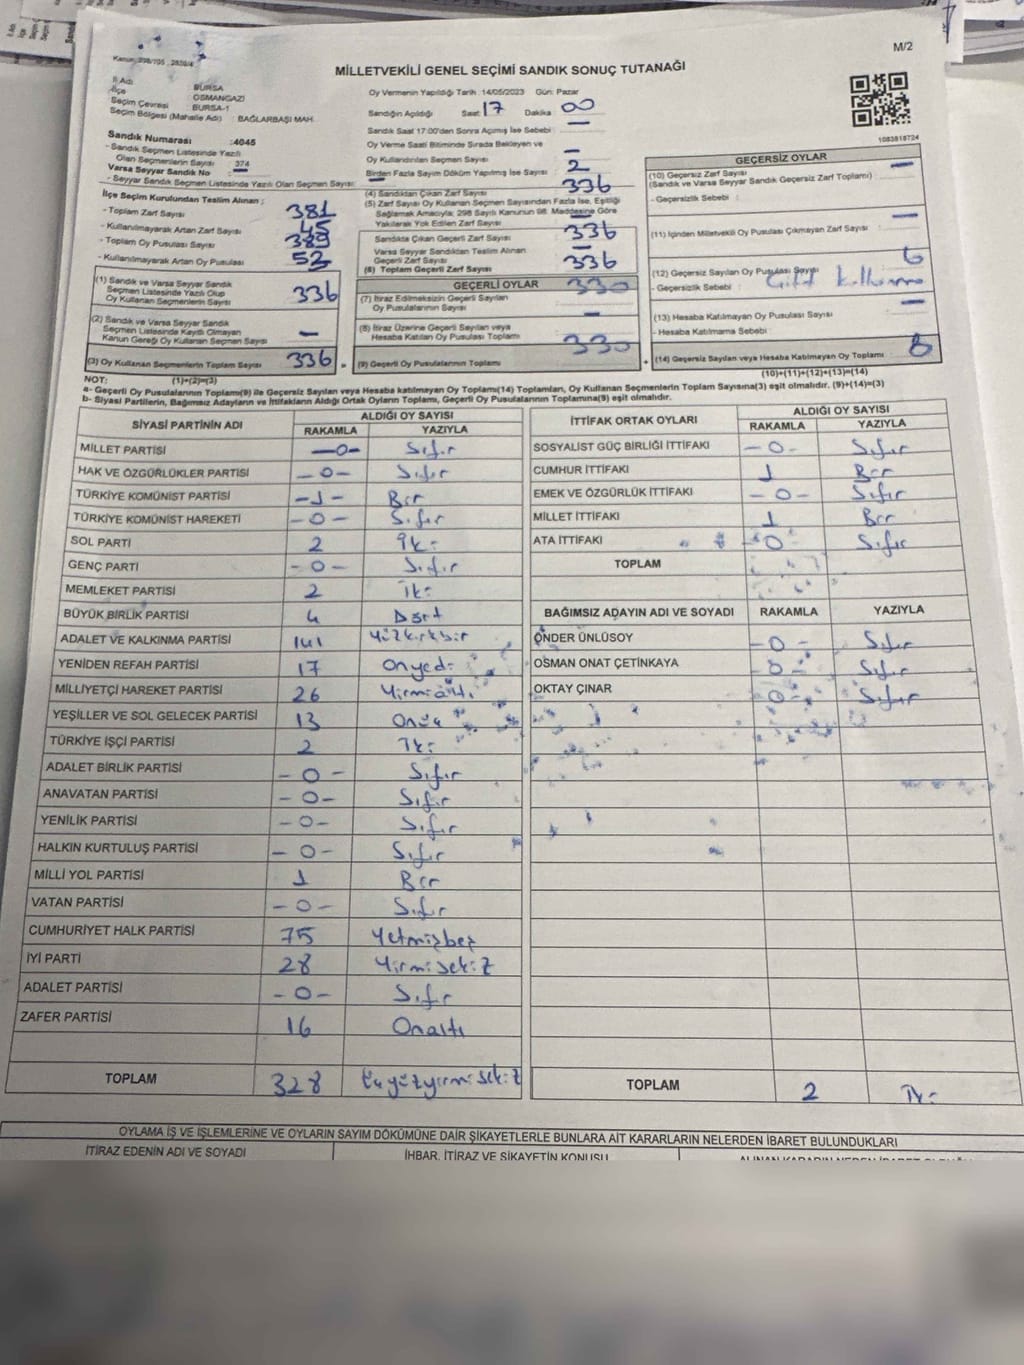 M/2
Kanun: 298/105 , 2839/4
MİLLETVEKİLİ GENEL SEÇİMİ SANDIK SONUÇ TUTANAĞI
İl Adı : BURSA
İlçe : OSMANGAZİ
Seçim Çevresi : BURSA-1
Seçim Bölgesi (Mahalle Adı) : BAĞLARBAŞI MAH.
Sandık Numarası :4045
- Sandık Seçmen Listesinde Yazılı
Olan Seçmenlerin Sayısı : 374
Varsa Seyyar Sandık No : —
- Seyyar Sandık Seçmen Listesinde Yazılı Olan Seçmen Sayısı: —
İlçe Seçim Kurulundan Teslim Alınan ;
- Toplam Zarf Sayısı : 381
- Kullanılmayarak Artan Zarf Sayısı : 45
- Toplam Oy Pusulası Sayısı : 389
- Kullanılmayarak Artan Oy Pusulası : 53
(1) Sandık ve Varsa Seyyar Sandık
Seçmen Listesinde Yazılı Olup
Oy Kullanan Seçmenlerin Sayısı 336
(2) Sandık ve Varsa Seyyar Sandık
Seçmen Listesinde Kayıtlı Olmayan
Kanun Gereği Oy Kullanan Seçmen Sayısı —
(3) Oy Kullanan Seçmenlerin Toplam Sayısı 336 =
Oy Vermenin Yapıldığı Tarih : 14/05/2023 Gün: Pazar
Sandığın Açıldığı Saat 17 Dakika 00
Sandık Saat 17:00'den Sonra Açımış İse Sebebi : —
Oy Verme Saati Bitiminde Sırada Bekleyen ve
Oy Kullandırılan Seçmen Sayısı : —
Birden Fazla Sayım Döküm Yapılmış İse Sayısı : 2
(4) Sandıktan Çıkan Zarf Sayısı : 336
(5) Zarf Sayısı Oy Kullanan Seçmen Sayısından Fazla İse, Eşitliği
Sağlamak Amacıyla; 298 Sayılı Kanunun 98. Maddesine Göre
Yakılarak Yok Edilen Zarf Sayısı : —
Sandıkta Çıkan Geçerli Zarf Sayısı 336
Varsa Seyyar Sandıktan Teslim Alınan
Geçerli Zarf Sayısı —
(6) Toplam Geçerli Zarf Sayısı 336
GEÇERLİ OYLAR
(7) İtiraz Edilmeksizin Geçerli Sayılan
Oy Pusulalarının Sayısı : 330
(8) İtiraz Üzerine Geçerli Sayılan veya
Hesaba Katılan Oy Pusulaları Toplamı —
(9) Geçerli Oy Pusulalarının Toplamı 330 +
1083818724
GEÇERSİZ OYLAR
(10) Geçersiz Zarf Sayısı —
(Sandık ve Varsa Seyyar Sandık Geçersiz Zarf Toplamı) :
- Geçersizlik Sebebi :
(11) İçinden Milletvekili Oy Pusulası Çıkmayan Zarf Sayısı : —
(12) Geçersiz Sayılan Oy Pusulası Sayısı 6
- Geçersizlik Sebebi :
(13) Hesaba Katılmayan Oy Pusulası Sayısı : —
- Hesaba Katılmama Sebebi :
(14) Geçersiz Sayılan veya Hesaba Katılmayan Oy Toplamı 6
NOT: (1)+(2)=(3) (10)+(11)+(12)+(13)=(14)
a- Geçerli Oy Pusulalarının Toplamı(9) ile Geçersiz Sayılan veya Hesaba katılmayan Oy Toplamı(14) Toplamları, Oy Kullanan Seçmenlerin Toplam Sayısına(3) eşit olmalıdır. (9)+(14)=(3)
b- Siyasi Partilerin, Bağımsız Adayların ve İttifakların Aldığı Ortak Oyların Toplamı, Geçerli Oy Pusulalarının Toplamına(9) eşit olmalıdır.
SİYASİ PARTİNİN ADI ALDIĞI OY SAYISI
RAKAMLA YAZIYLA
MİLLET PARTİSİ —0— Sıfır
HAK VE ÖZGÜRLÜKLER PARTİSİ —0— Sıfır
TÜRKİYE KOMÜNİST PARTİSİ —1— Bir
TÜRKİYE KOMÜNİST HAREKETİ —0— Sıfır
SOL PARTİ 2 İki
GENÇ PARTİ —0— Sıfır
MEMLEKET PARTİSİ 2 İki
BÜYÜK BİRLİK PARTİSİ 4 Dört
ADALET VE KALKINMA PARTİSİ 141 Yüzkırkbir
YENİDEN REFAH PARTİSİ 17 Onyedi
MİLLİYETÇİ HAREKET PARTİSİ 26 Yirmialtı
YEŞİLLER VE SOL GELECEK PARTİSİ 13 Onüç
TÜRKİYE İŞÇİ PARTİSİ 2 İki
ADALET BİRLİK PARTİSİ —0— Sıfır
ANAVATAN PARTİSİ —0— Sıfır
YENİLİK PARTİSİ —0— Sıfır
HALKIN KURTULUŞ PARTİSİ —0— Sıfır
MİLLİ YOL PARTİSİ 1 Bir
VATAN PARTİSİ —0— Sıfır
CUMHURİYET HALK PARTİSİ 75 Yetmişbeş
İYİ PARTİ 28 Yirmisekiz
ADALET PARTİSİ —0— Sıfır
ZAFER PARTİSİ 16 Onaltı
TOPLAM 328 Üçyüzyirmisekiz
İTTİFAK ORTAK OYLARI ALDIĞI OY SAYISI
RAKAMLA YAZIYLA
SOSYALİST GÜÇ BİRLİĞİ İTTİFAKI —0— Sıfır
CUMHUR İTTİFAKI 1 Bir
EMEK VE ÖZGÜRLÜK İTTİFAKI —0— Sıfır
MİLLET İTTİFAKI 1 Bir
ATA İTTİFAKI —0— Sıfır
TOPLAM
BAĞIMSIZ ADAYIN ADI VE SOYADI RAKAMLA YAZIYLA
ÖNDER ÜNLÜSOY —0— Sıfır
OSMAN ONAT ÇETİNKAYA —0— Sıfır
OKTAY ÇINAR —0— Sıfır
TOPLAM 2 İki
OYLAMA İŞ VE İŞLEMLERİNE VE OYLARIN SAYIM DÖKÜMÜNE DAİR ŞİKAYETLERLE BUNLARA AİT KARARLARIN NELERDEN İBARET BULUNDUKLARI
İTİRAZ EDENİN ADI VE SOYADI İHBAR, İTİRAZ VE ŞİKAYETİN KONUSU